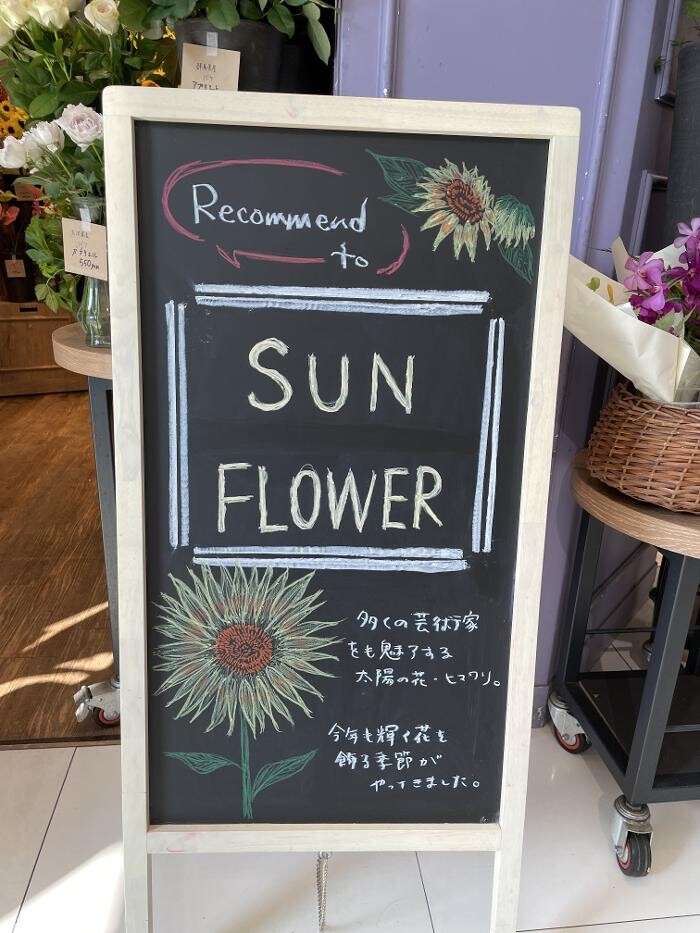 Recommend
to
SUN
FLOWER
多くの芸術家
をも魅了する
太陽の花・ヒマワリ。
今年も輝く花を
飾る季節が
やってきました。
バラ
バラ
550